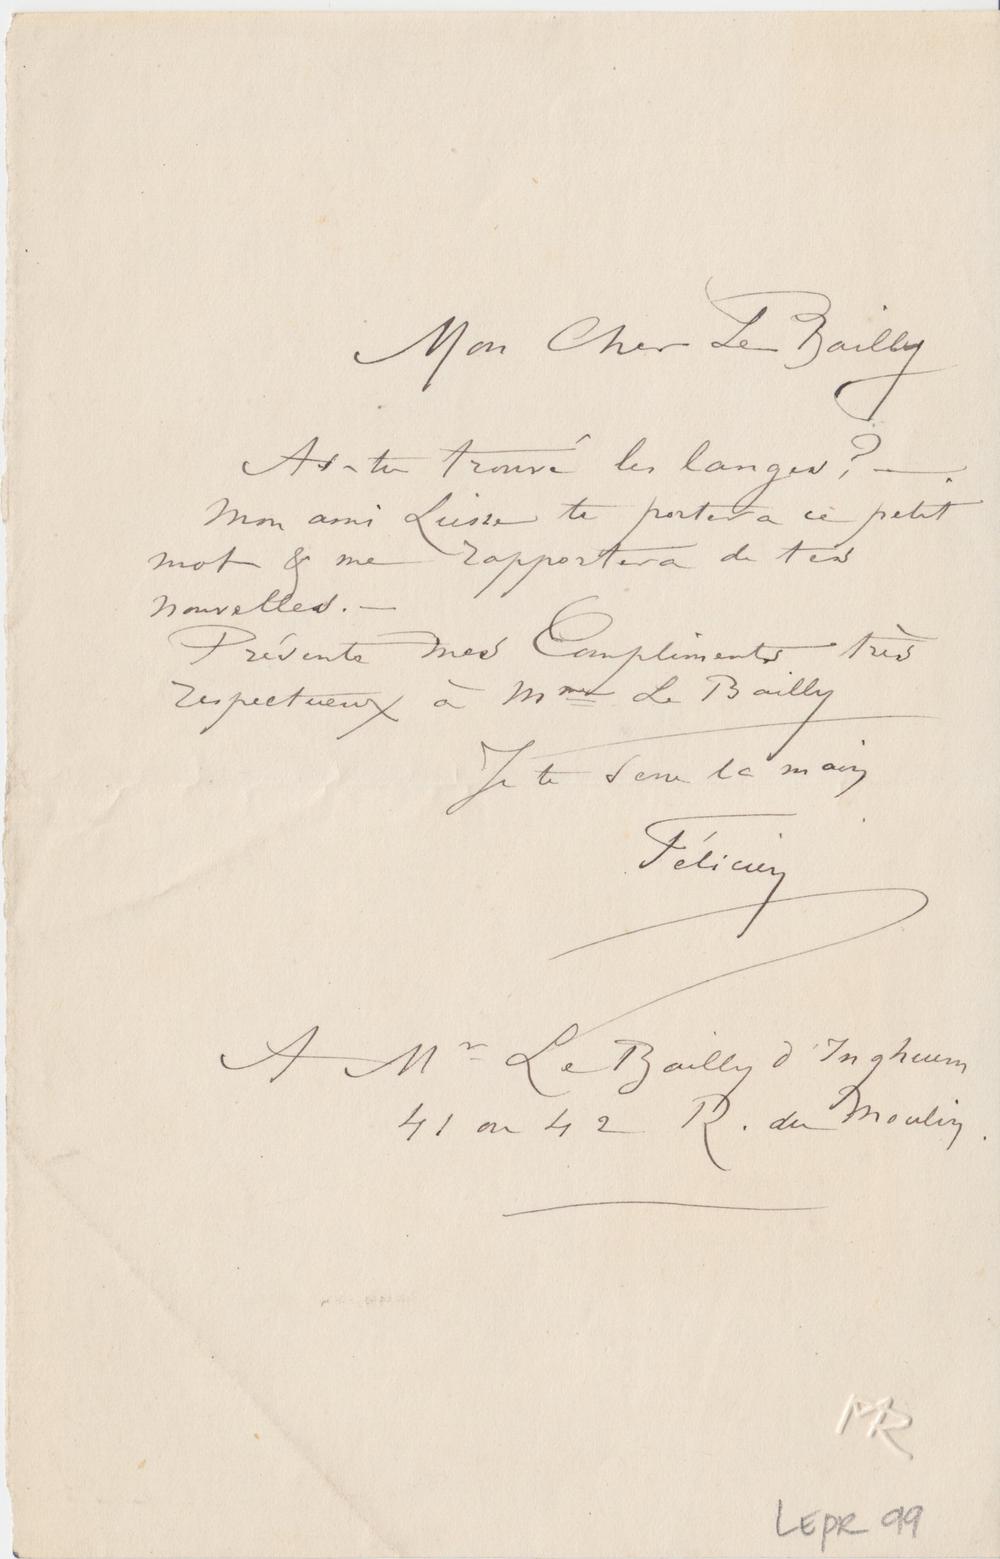 Mon Cher Le Bailly
As-tu trouvé les langes? —
Mon ami Liesse te portera ce petit
mot & me rapportera de tes
nouvelles. —
Présente mes Compliments très
respectueux à Mme Le Bailly
Je te serre la main
Félicien
A Mr Le Bailly d'Inghuem
41 ou 42 R. du Moulin.
MR
LEpR 99